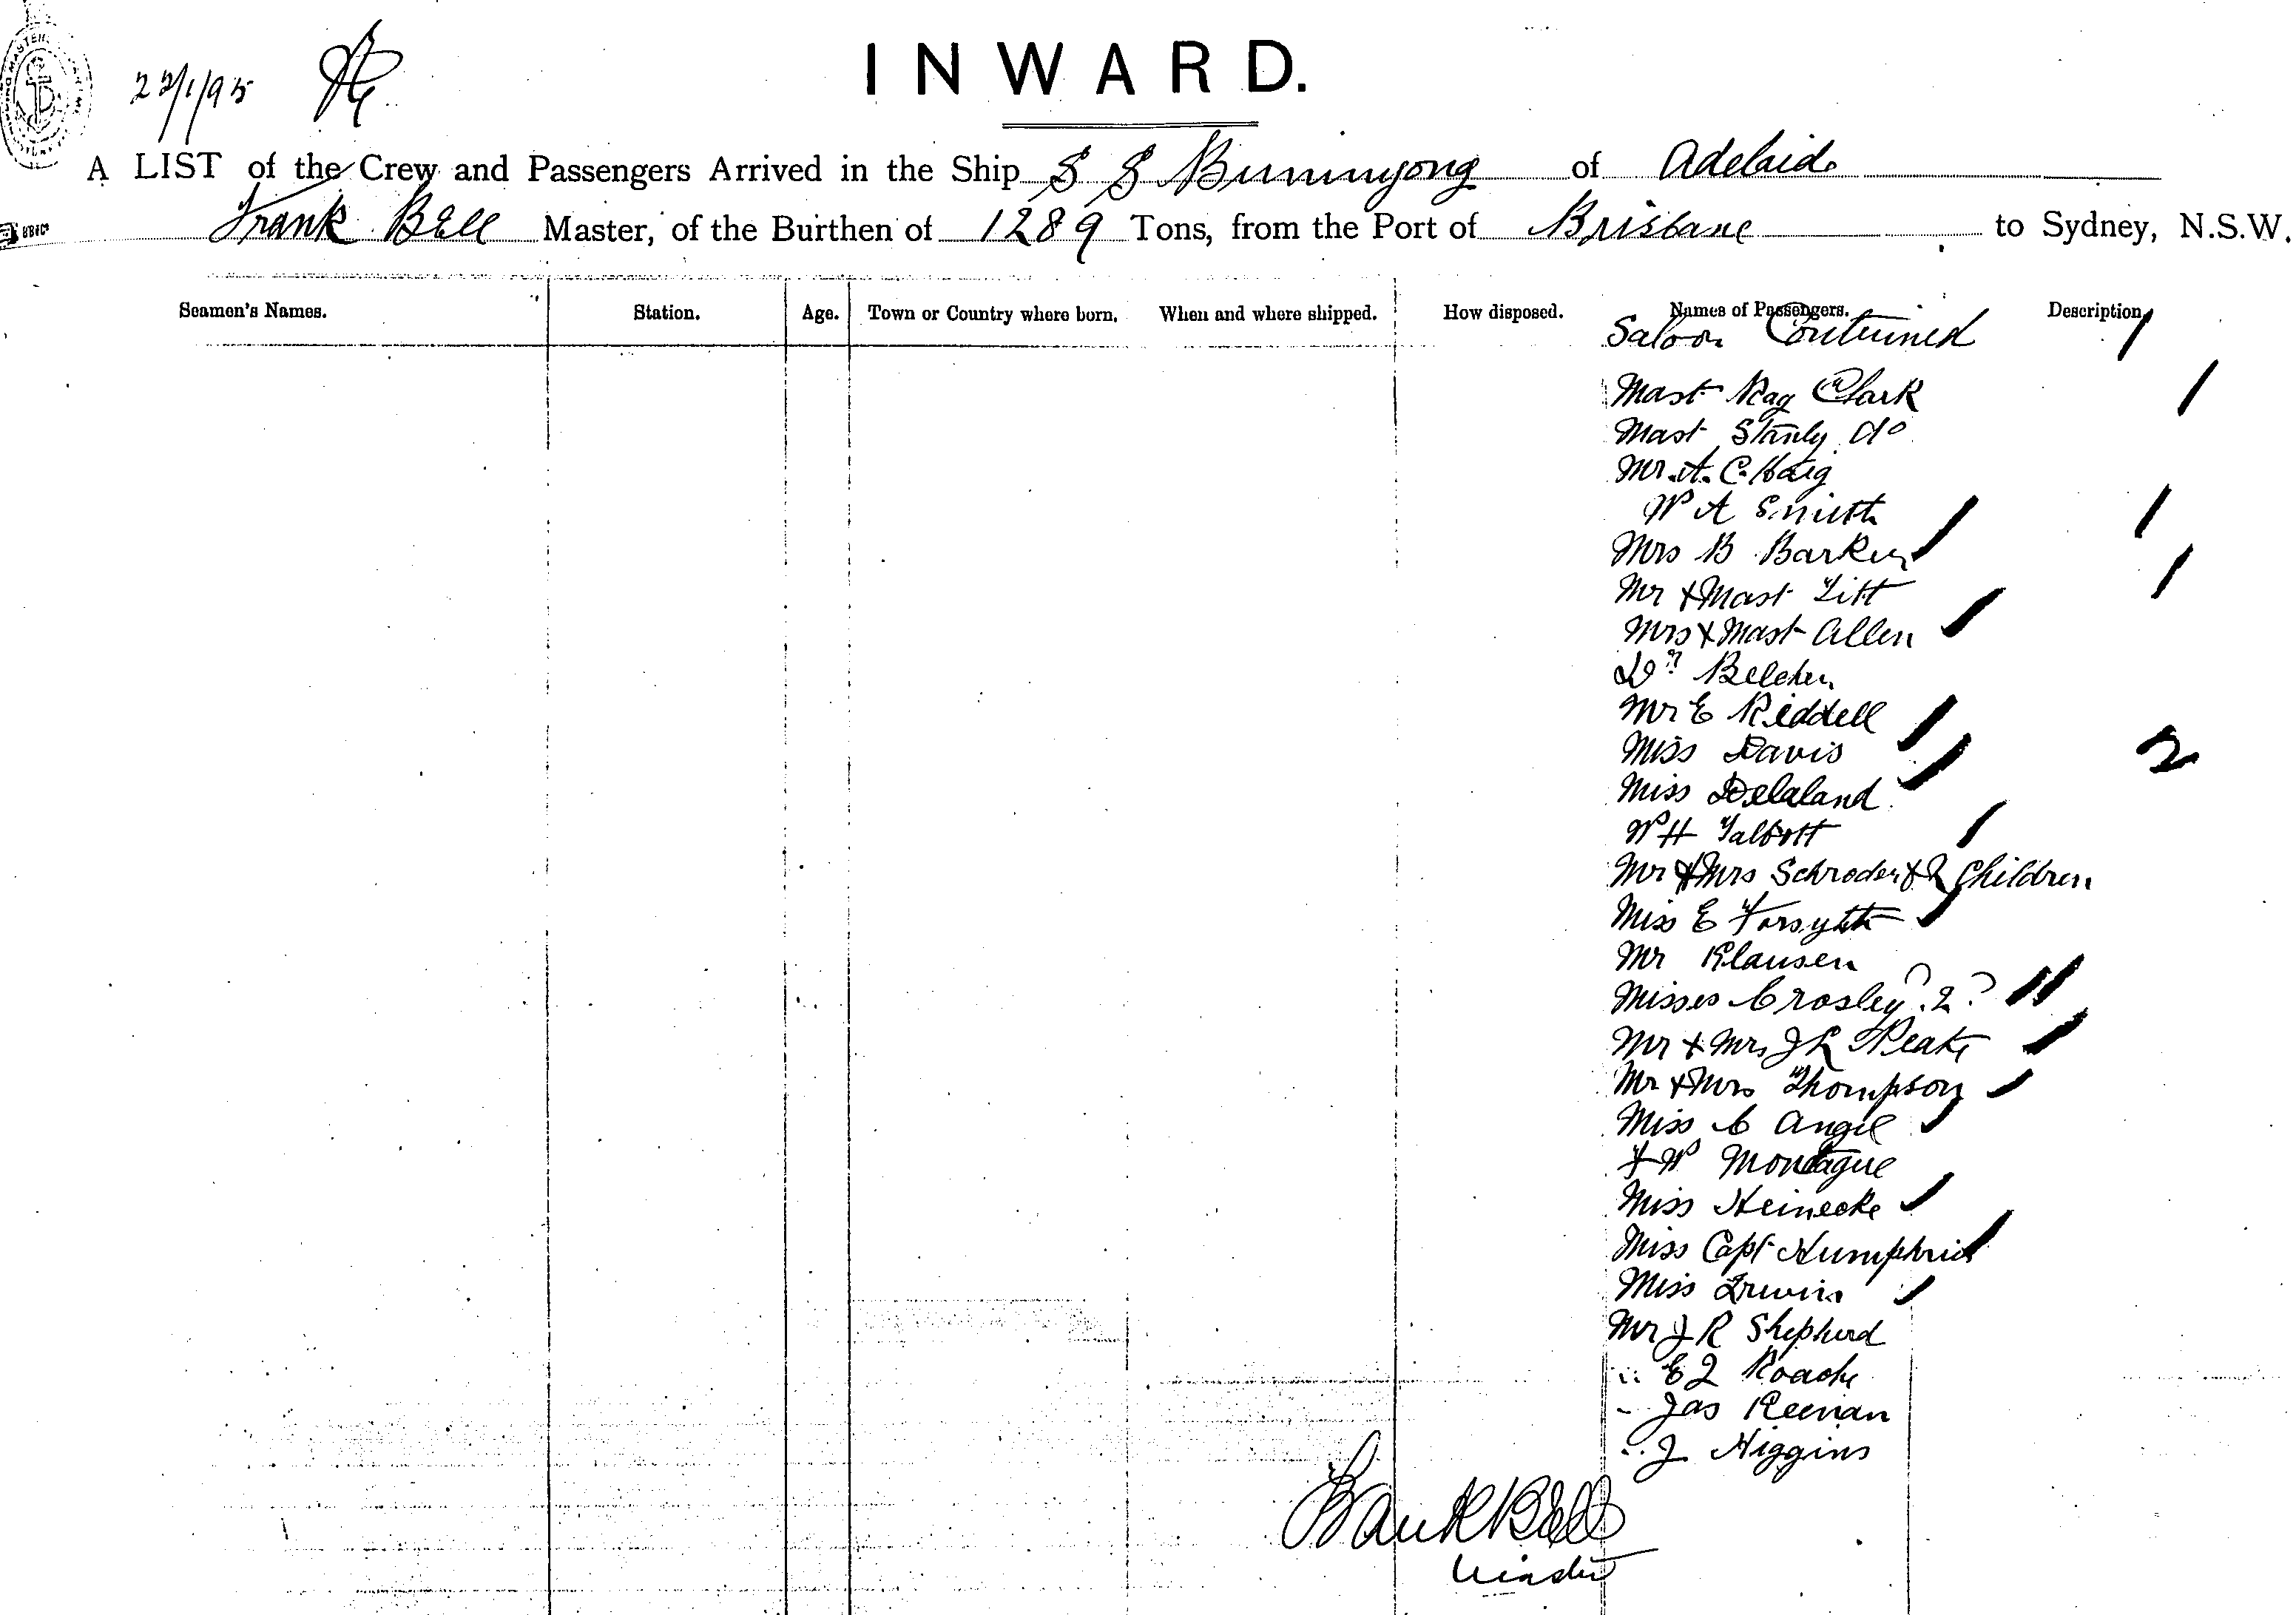 22/1/95
INWARD.
A LIST of the Crew and Passengers Arrived in the Ship S S Buninyong of Adelaide
Frank Bell Master, of the Burthen of 1289 Tons, from the Port of Brisbane to Sydney, N.S.W.
Seamen's Names. Station. Age. Town or Country where born. When and where shipped. How disposed. Names of Passengers. Description
Saloon Continued
Mast Rag Clark
Mast Stanly do
Mr. A. C. Haig
W A Smith
Mrs B Barker
Mr & Mast Titt
Mrs & Mast Allen
Dr Belcher
Mr E Riddell
Miss Davis
Miss Delaland
2
W H Talbott
Mr & Mrs Schroder & 2 Children
Miss E Forsyth
Mr Klausen
Misses Crosley ? 2 ?
Mr & Mrs J R Peake
Mr & Mrs Thompson
Miss C Angel
F W Montague
Miss Heinecke
Miss Capt Humphries
Miss Irwin
Mr J R Shepherd
" E J Roache
" Jas Keenan
" J Higgins
Frank Bell
Master